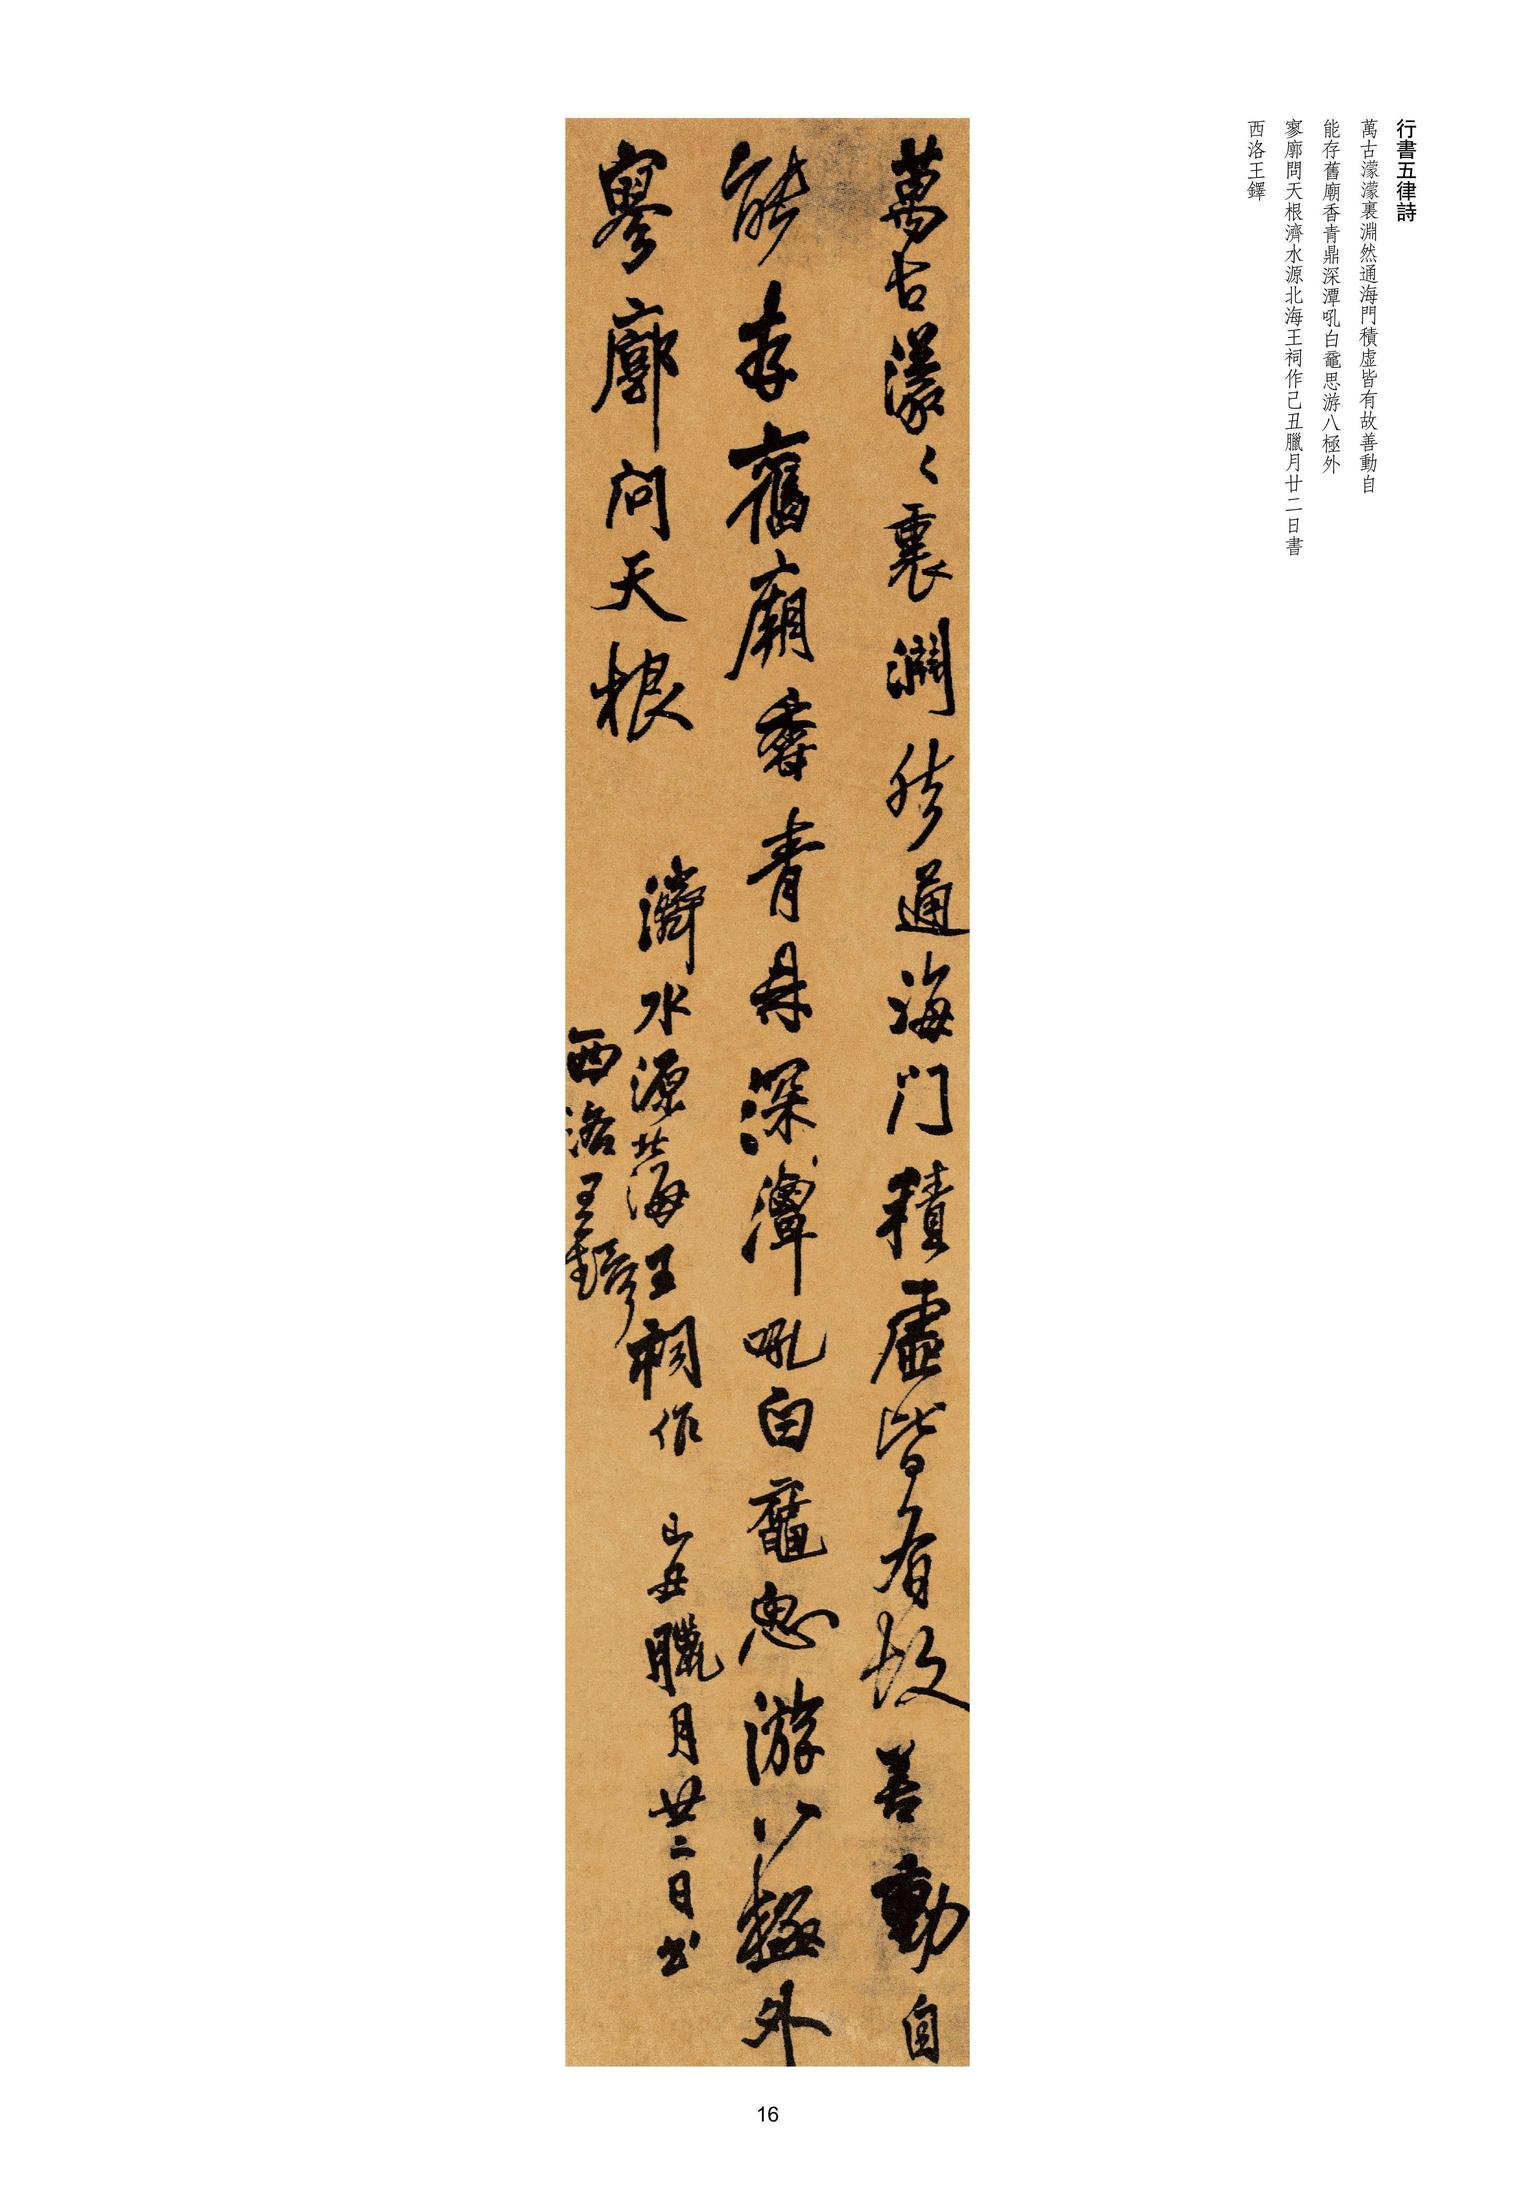 行書五律詩
萬古濛濛裏淵然通海門積虛皆有故善動自
能存舊廟香青鼎深潭吼白黿思游八極外
寥廓問天根濟水源北海王祠作己丑臘月廿二日書
西洛王鐸
萬古濛〻裏淵然通海門積虛皆有故善動自
能存舊廟香青鼎深潭吼白黿思游八極外
寥廓問天根
濟水源北海王祠作 己丑臘月廿二日書
西洛王鐸
16